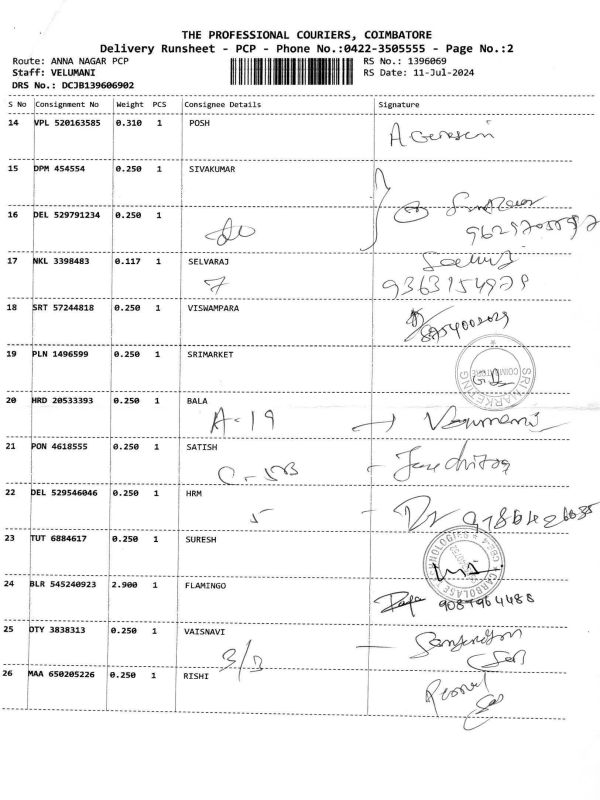 THE PROFESSIONAL COURIERS, COIMBATORE
Delivery Runsheet - PCP - Phone No.:0422-3505555 - Page No.:2
Route: ANNA NAGAR PCP RS No.: 1396069
Staff: VELUMANI RS Date: 11-Jul-2024
DRS No.: DCJB139606902
S No Consignment No Weight PCS Consignee Details Signature
14 VPL 520163585 0.310 1 POSH
15 DPM 454554 0.250 1 SIVAKUMAR
16 DEL 529791234 0.250 1
17 NKL 3398483 0.117 1 SELVARAJ
7 9363154979
18 SRT 57244818 0.250 1 VISWAMPARA
8754002029
19 PLN 1496599 0.250 1 SRIMARKET
SRI MARKETING COIMBATORE
20 HRD 20533393 0.250 1 BALA
A-19
21 PON 4618555 0.250 1 SATISH
22 DEL 529546046 0.250 1 HRM
5
23 TUT 6884617 0.250 1 SURESH
24 BLR 545240923 2.900 1 FLAMINGO
9087964488
25 OTY 3838313 0.250 1 VAISNAVI
3/3
26 MAA 650205226 0.250 1 RISHI